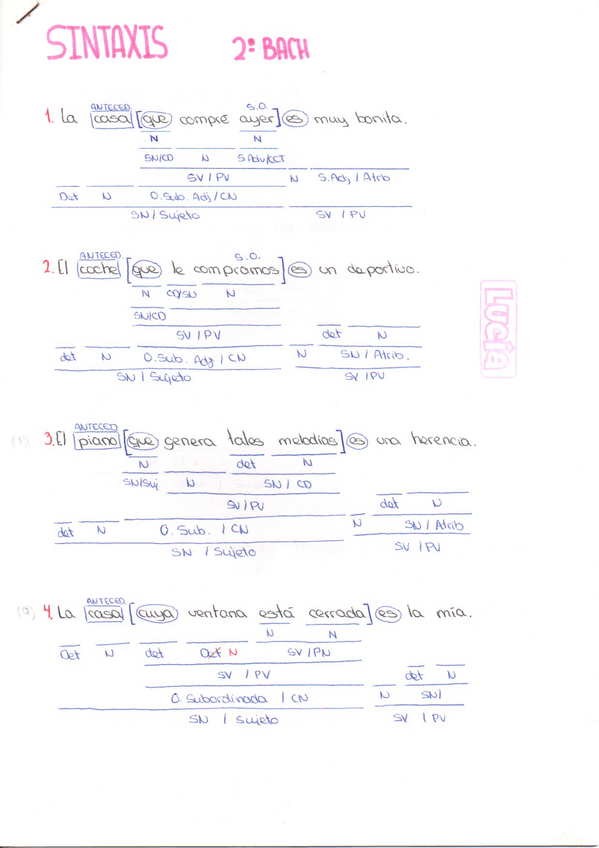 SINTAXIS 2º BACH
ANTECED. S.O.
1. La casa [que compré ayer] es muy bonita.
N N
SN/CD N S.Adv/CCT
SV / PV N S.Adj / Atrib
Det N O.Sub. Adj / CN
SN / Sujeto SV / PV
ANTECED. S.O.
2. El coche [que le compramos] es un deportivo.
N CD/SN N
SN/CD
SV / PV det N
det N O.Sub. Adj / CN N SN / Atrib.
SN / Sujeto SV / PV
Lucía
ANTECED.
(1) 3. El piano [que genera tales melodías] es una herencia.
N det N
SN/Suj N SN / CD
SV / PV det N
det N O. Sub. / CN N SN / Atrib
SN / Sujeto SV / PV
ANTECED.
4. La casa [cuya ventana está cerrada] es la mía.
N N
Det N det Det N SV / PN
SV / PV det N
O. Subordinada / CN N SN/
SN / Sujeto SV / PV